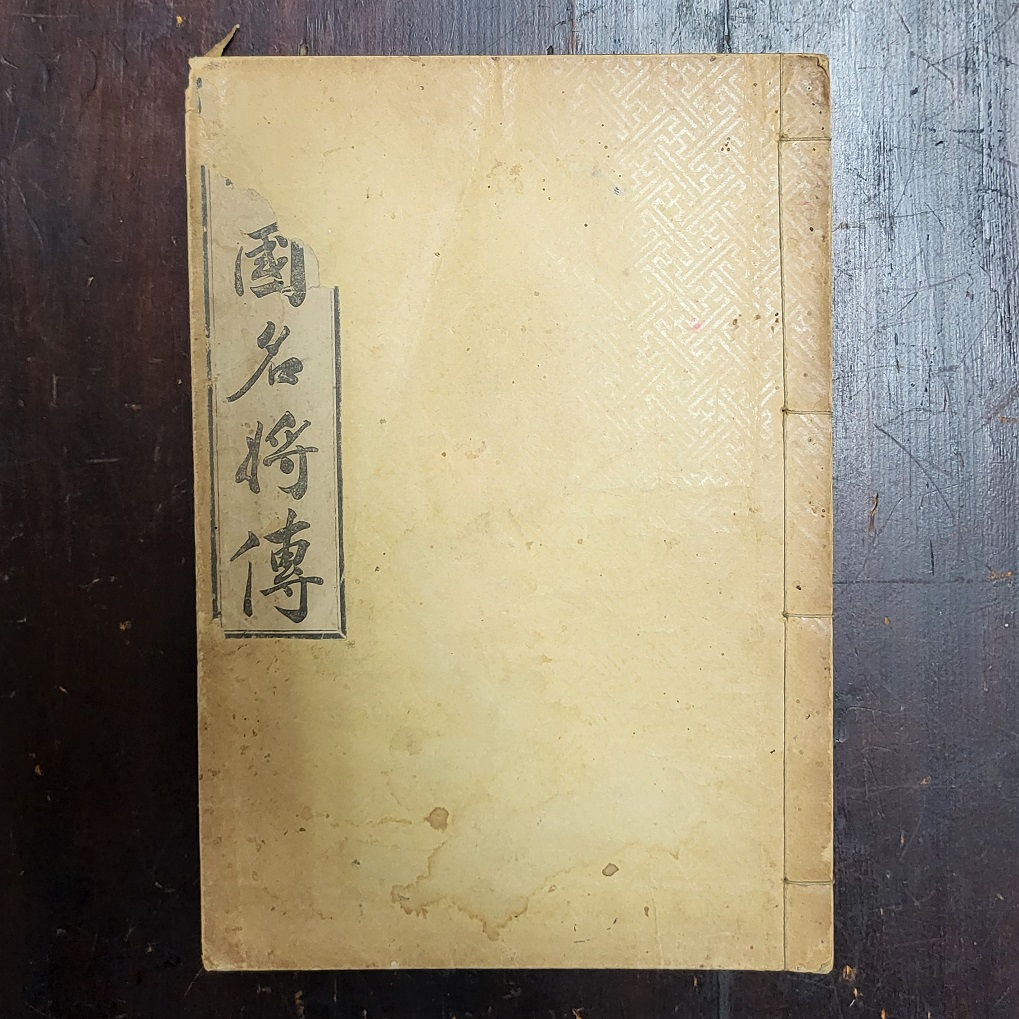 國名將傳